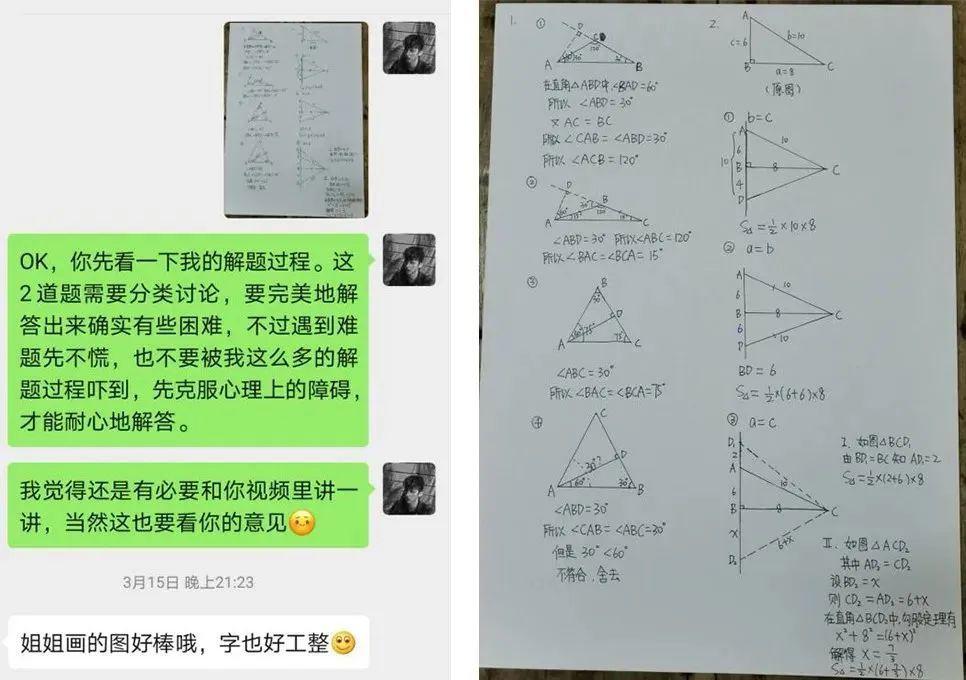 OK，你先看一下我的解题过程。这
2道题需要分类讨论，要完美地解
答出来确实有些困难，不过遇到难
题先不慌，也不要被我这么多的解
题过程吓到，先克服心理上的障碍，
才能耐心地解答。
我觉得还是有必要和你视频里讲一
讲，当然这也要看你的意见
3月15日 晚上21:23
姐姐画的图好棒哦，字也好工整
1.
①
D
C
120°
A
B
在直角△ABD中,∠BAD=60°
所以 ∠ABD=30°
又 AC=BC
所以∠CAB=∠ABD=30°
所以 ∠ACB=120°
②
D
B
30°
120°
A
C
∠ABD=30° 所以∠ABC=120°
所以∠BAC=∠BCA=15°
③
B
30°
D
60°
75°
75°
A
C
∠ABC=30°
所以∠BAC=∠BCA=75°
④
C
30°?
D
60°
30°
A
B
∠ABD=30°
所以∠CAB=∠ABC=30°
但是 30°<60°
不符合,舍去
2.
A
c=6
b=10
B
C
a=8
(原图)
① b=c
A
6
10
10
B
8
C
4
D
S△=½×10×8
② a=b
A
6
10
B
8
C
6
10
D
BD=6
S△=½×(6+6)×8
③ a=c
D₁
2
A
6
10
B
8
C
x
6+x
D₂
I. 如图△BCD₁
由BD₁=BC知AD₁=2
S△=½×(2+6)×8
II. 如图△ACD₂
其中AD₂=CD₂
设BD₂=x
则CD₂=AD₂=6+x
在直角△BCD₂中,勾股定理有
x²+8²=(6+x)²
解得 x=7/3
S△=½×(6+7/3)×8